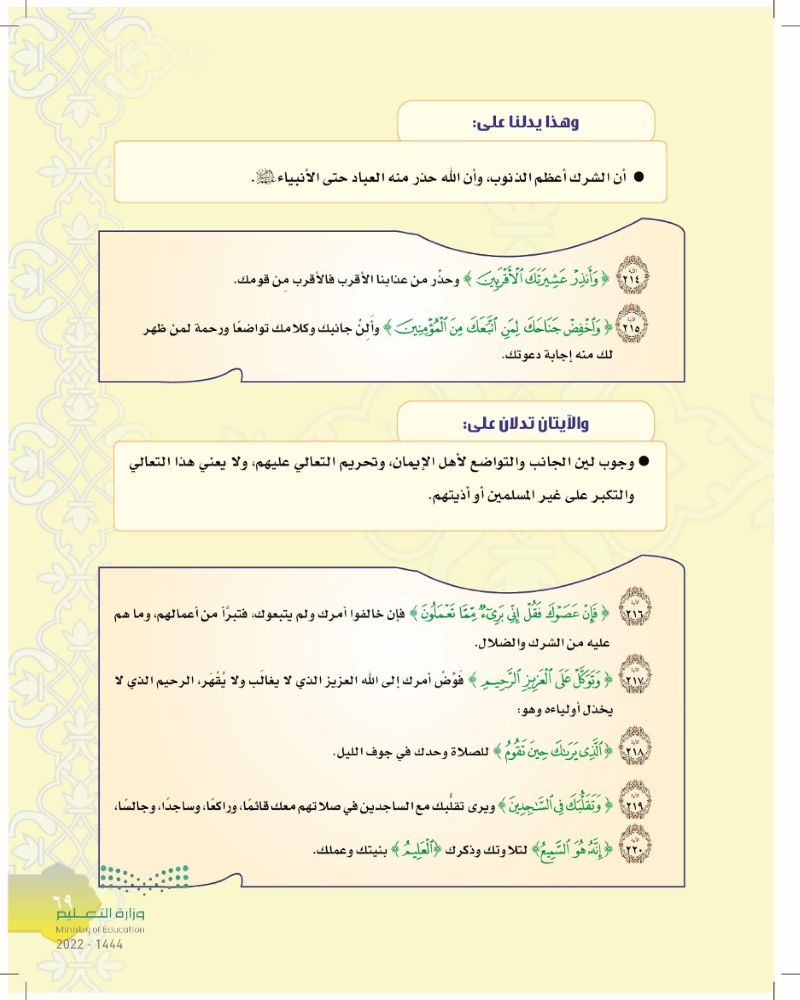 وهذا يدلنا على:
● أن الشرك أعظم الذنوب، وأن الله حذر منه العباد حتى الأنبياء ﷺ.
٢١٤ ﴿ وَأَنذِرْ عَشِيرَتَكَ ٱلْأَقْرَبِينَ ﴾ وحذّر من عذابنا الأقرب فالأقرب مِن قومك.
٢١٥ ﴿ وَٱخْفِضْ جَنَاحَكَ لِمَنِ ٱتَّبَعَكَ مِنَ ٱلْمُؤْمِنِينَ ﴾ وأَلِنْ جانبك وكلامك تواضعًا ورحمة لمن ظهر
لك منه إجابة دعوتك.
والآيتان تدلان على:
● وجوب لين الجانب والتواضع لأهل الإيمان، وتحريم التعالي عليهم، ولا يعني هذا التعالي
والتكبر على غير المسلمين أو أذيتهم.
٢١٦ ﴿ فَإِنْ عَصَوْكَ فَقُلْ إِنِّى بَرِىٓءٌ مِّمَّا تَعْمَلُونَ ﴾ فإن خالفوا أمرك ولم يتبعوك، فتبرَّأ من أعمالهم، وما هم
عليه من الشرك والضلال.
٢١٧ ﴿ وَتَوَكَّلْ عَلَى ٱلْعَزِيزِ ٱلرَّحِيمِ ﴾ فَوِّضْ أمرك إلى الله العزيز الذي لا يغالَب ولا يُقْهَر، الرحيم الذي لا
يخذل أولياءه وهو:
٢١٨ ﴿ ٱلَّذِى يَرَىٰكَ حِينَ تَقُومُ ﴾ للصلاة وحدك في جوف الليل.
٢١٩ ﴿ وَتَقَلُّبَكَ فِى ٱلسَّٰجِدِينَ ﴾ ويرى تقلُّبك مع الساجدين في صلاتهم معك قائمًا، وراكعًا، وساجدًا، وجالسًا،
٢٢٠ ﴿ إِنَّهُۥ هُوَ ٱلسَّمِيعُ ﴾ لتلاوتك وذكرك ﴿ ٱلْعَلِيمُ ﴾ بنيتك وعملك.
٦٩
وزارة التعليم
Ministry of Education
2022 - 1444